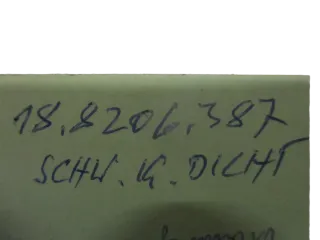 18.8206.387
SCHW.K.DICHT